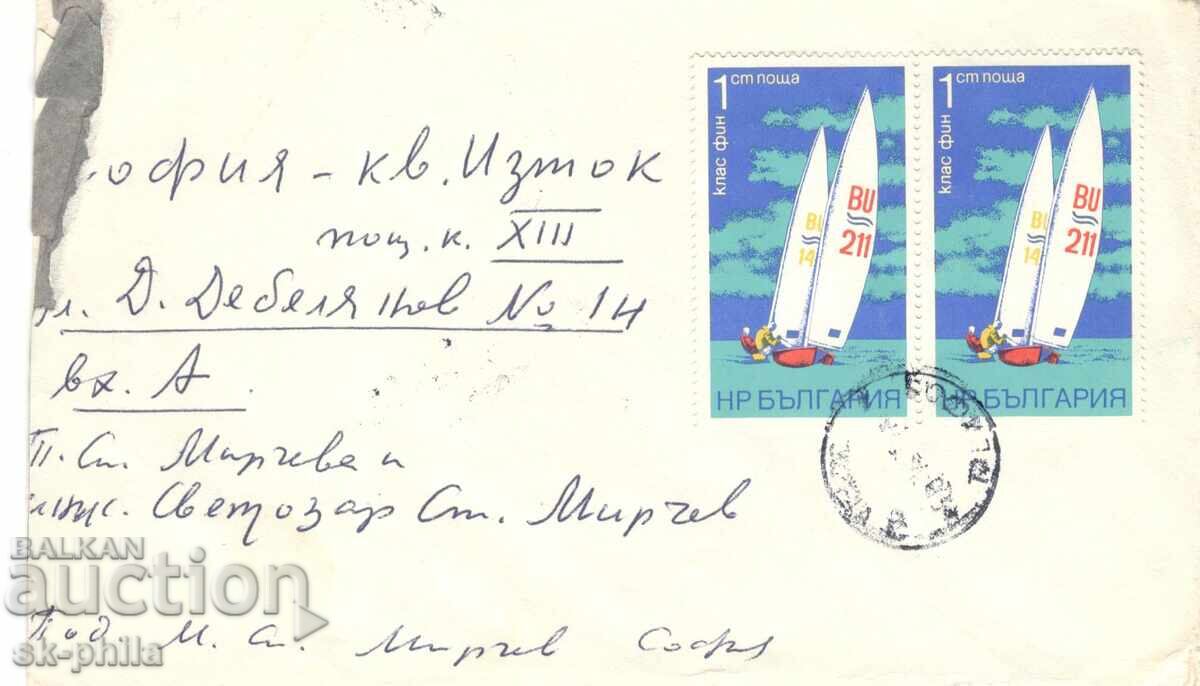 офия - кв. Изток
пощ. к. XIII
л. Д. Дебелянов № 1н
вх. А.
П. Ст. Мирчева и
инж. Светозар Ст. Мирчев
Под. М. Ст. Мирчев София
1 ст поща
клас фин
BU
14
BU
211
НР БЪЛГАРИЯ
1 ст поща
клас фин
BU
14
BU
211
НР БЪЛГАРИЯ
BALKAN
auction
sk-phila